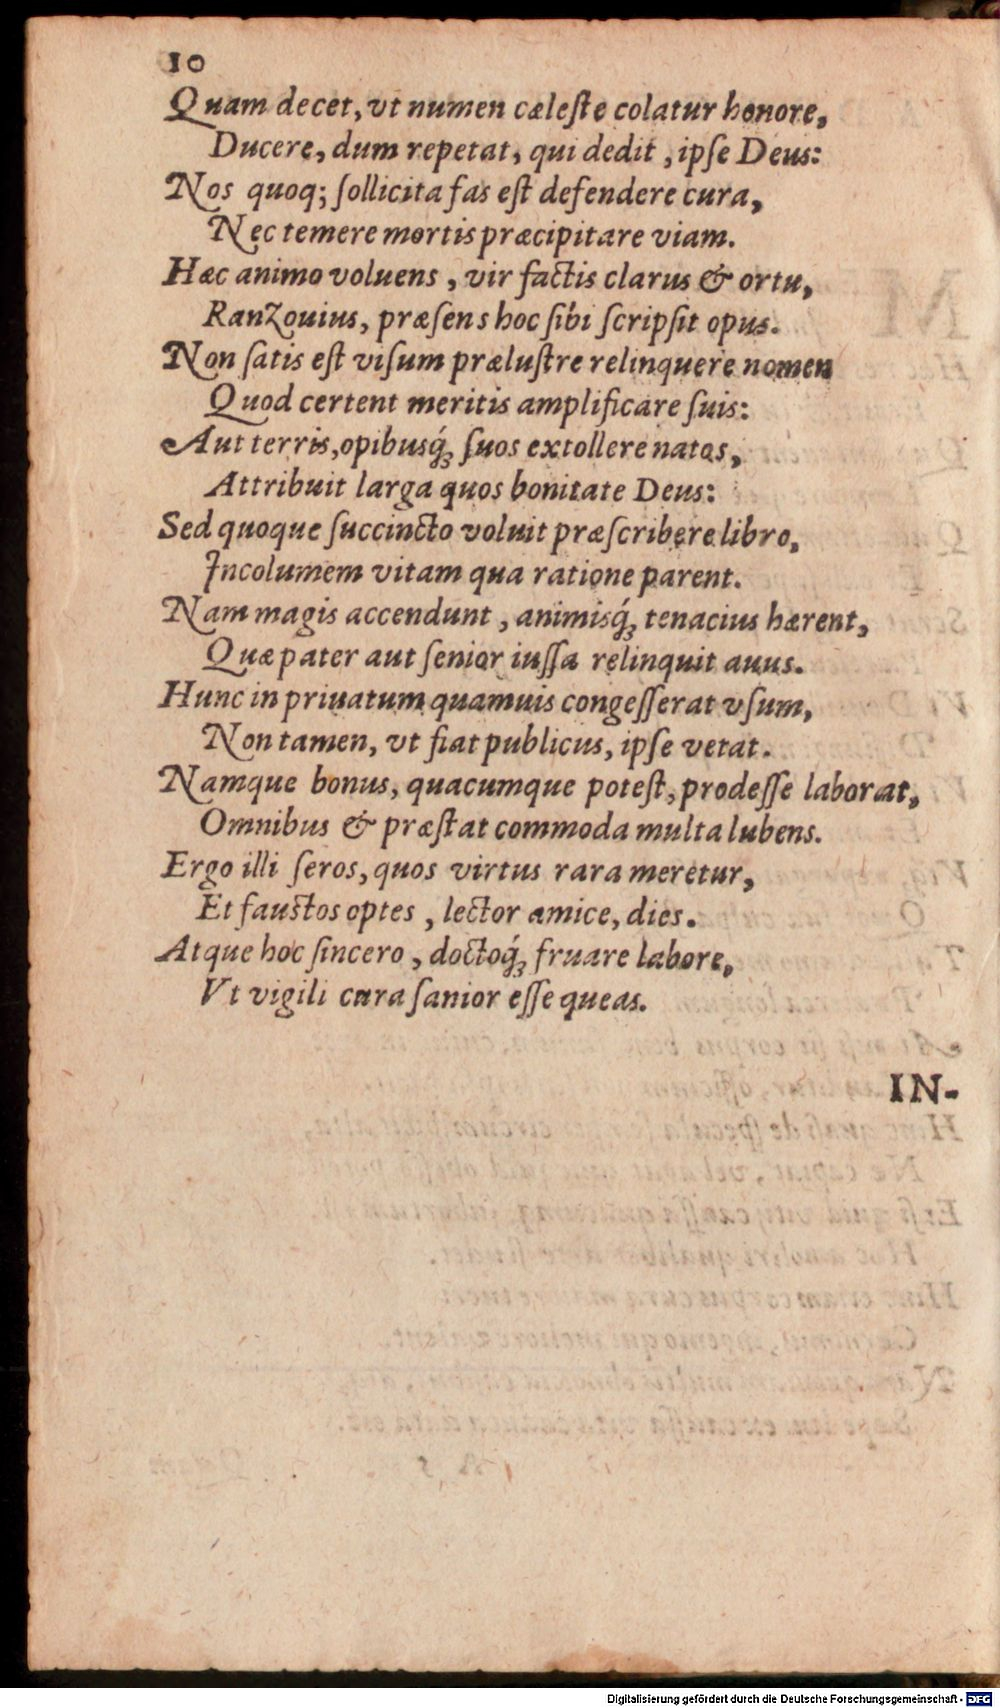 10
Quam decet, vt numen cæleſte colatur honore,
Ducere, dum repetat, qui dedit, ipſe Deus:
Nos quoq; ſollicita fas eſt defendere cura,
Nec temere mortis præcipitare viam.
Hæc animo voluens, vir factis clarus & ortu,
Ranzouius, præſens hoc ſibi ſcripſit opus.
Non ſatis eſt viſum præluſtre relinquere nomen
Quod certent meritis amplificare ſuis:
Aut terris, opibusq́ꝫ ſuos extollere natos,
Attribuit larga quos bonitate Deus:
Sed quoque ſuccincto voluit præſcribere libro,
Incolumem vitam qua ratione parent.
Nam magis accendunt, animisq́ꝫ tenacius hærent,
Quæ pater aut ſenior iuſſa relinquit auus.
Hunc in priuatum quamuis congeſſerat vſum,
Non tamen, vt fiat publicus, ipſe vetat.
Namque bonus, quacumque poteſt, prodeſſe laborat,
Omnibus & præſtat commoda multa lubens.
Ergo illi ſeros, quos virtus rara meretur,
Et fauſtos optes, lector amice, dies.
Atque hoc ſincero, doctoq́ꝫ fruare labore,
Vt vigili cura ſanior eſſe queas.
IN-
Digitalisierung gefördert durch die Deutsche Forschungsgemeinschaft - DFG